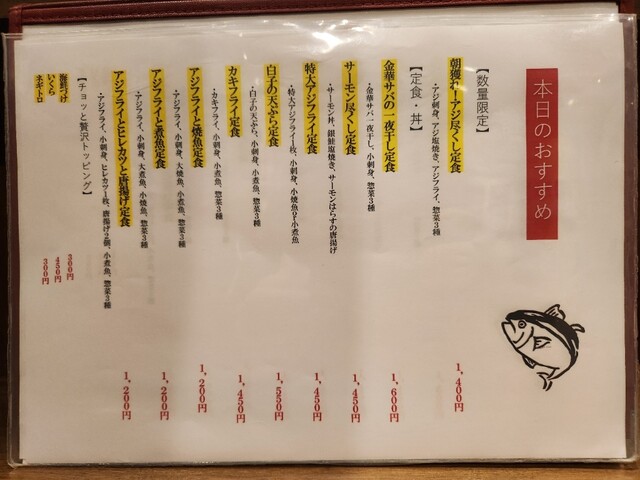 本日のおすすめ
【数量限定】
朝獲れ！アジ尽くし定食 1,400円
・アジ刺身、アジ塩焼き、アジフライ、惣菜3種
【定食・丼】
金華サバの一夜干し定食 1,600円
・金華サバ一夜干し、小刺身、惣菜3種
サーモン尽くし定食 1,450円
・サーモン丼、銀鮭塩焼き、サーモンはらすの唐揚げ
特大アジフライ定食 1,450円
・特大アジフライ1枚、小刺身、小焼魚or小煮魚
白子の天ぷら定食 1,550円
・白子の天ぷら、小刺身、小煮魚、惣菜3種
カキフライ定食 1,450円
・カキフライ、小刺身、小煮魚、惣菜3種
アジフライと焼魚定食 1,200円
・アジフライ、小刺身、大焼魚、小煮魚、惣菜3種
アジフライと煮魚定食 1,200円
・アジフライ、小刺身、大煮魚、小焼魚、惣菜3種
アジフライとヒレカツと唐揚げ定食 1,200円
・アジフライ、小刺身、ヒレカツ1枚、唐揚げ2個、小煮魚、惣菜3種
【チョッと贅沢トッピング】
海鮮づけ 300円
いくら 450円
ネギトロ 300円